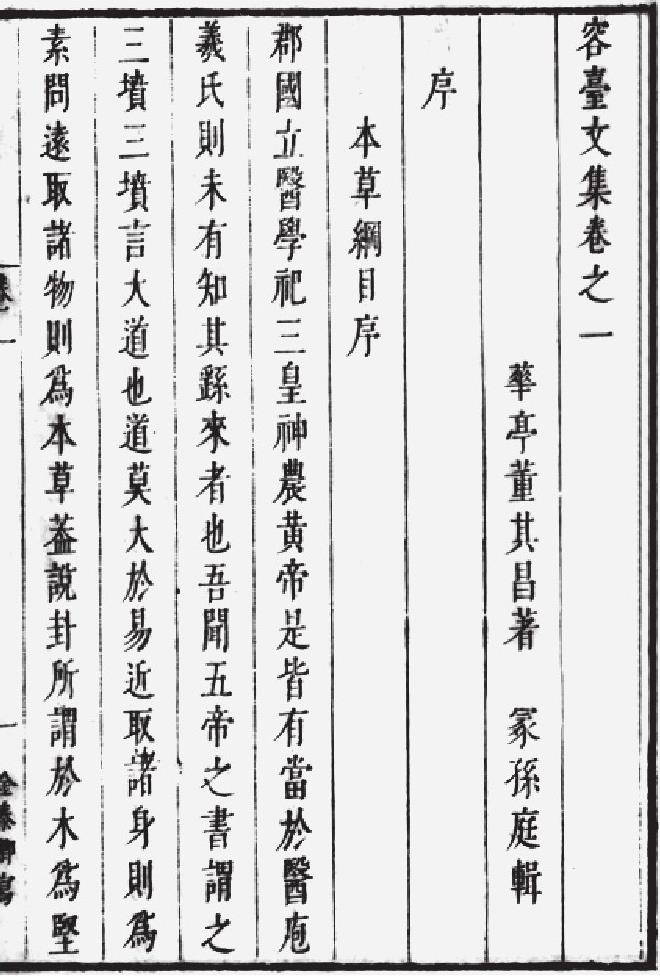 容臺文集卷之一
華亭董其昌著　冢孫庭輯
序
本草綱目序
郡國立醫學祀三皇神農黃帝是皆有當於醫庖
羲氏則未有知其繇來者也吾聞五帝之書謂之
三墳三墳言大道也道莫大於易近取諸身則爲
素問遠取諸物則爲本草葢說卦所謂於木爲堅